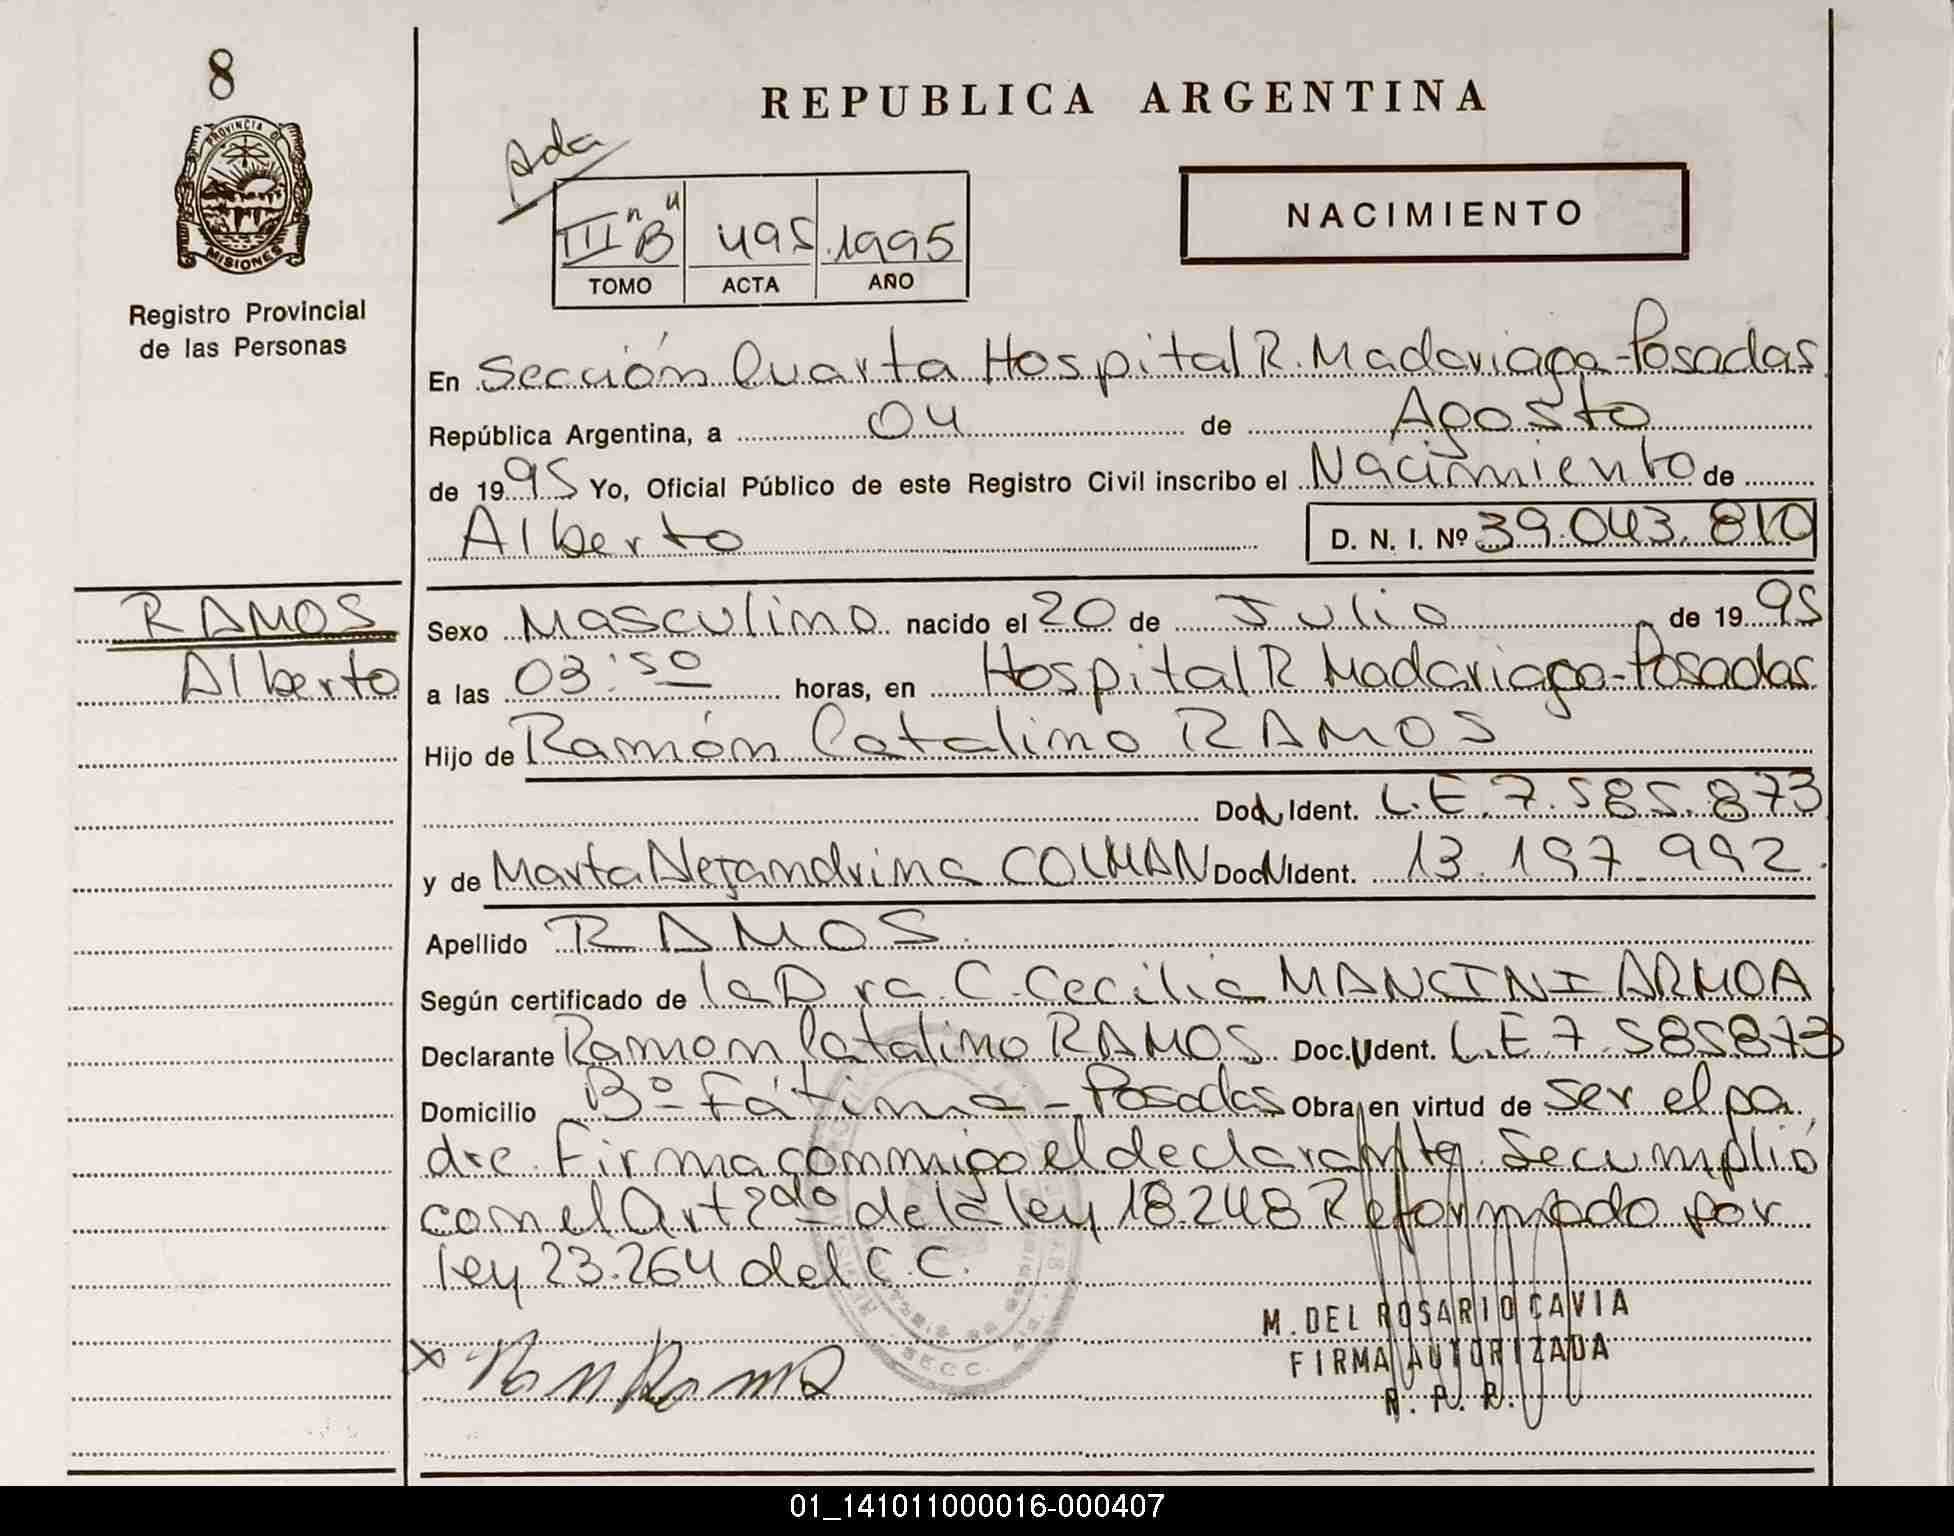 8
PROVINCIA DE
MISIONES
Registro Provincial
de las Personas
REPUBLICA ARGENTINA
Ada
III "B" 495 1995
TOMO ACTA AÑO
NACIMIENTO
En Sección Cuarta Hospital R. Madariaga-Posadas
República Argentina, a 04 de Agosto
de 1995 Yo, Oficial Público de este Registro Civil inscribo el Nacimiento de
Alberto D. N. I. Nº 39.043.810
RAMOS
Alberto
Sexo Masculino nacido el 20 de Julio de 1995
a las 03:50 horas, en Hospital R Madariaga-Posadas
Hijo de Ramón Catalino RAMOS
Doc. Ident. L.E. 7.585.873
y de Marta Alejandrina COLMAN Doc. Ident. 13.197.992.
Apellido RAMOS.
Según certificado de la Dra. C. Cecilia MANCINI ARMOA
Declarante Ramon Catalino RAMOS Doc. Ident. L.E 7.585873
Domicilio Bº Fátima-Posadas Obra en virtud de ser el pa
dre. Firma conmigo el declarante. Se cumplió
con el Art 2do de la ley 18.248 Reformado por
ley 23.264 del C.C.
X
M. DEL ROSARIO CAVIA
FIRMA AUTORIZADA
R. P. P.
01_141011000016-000407